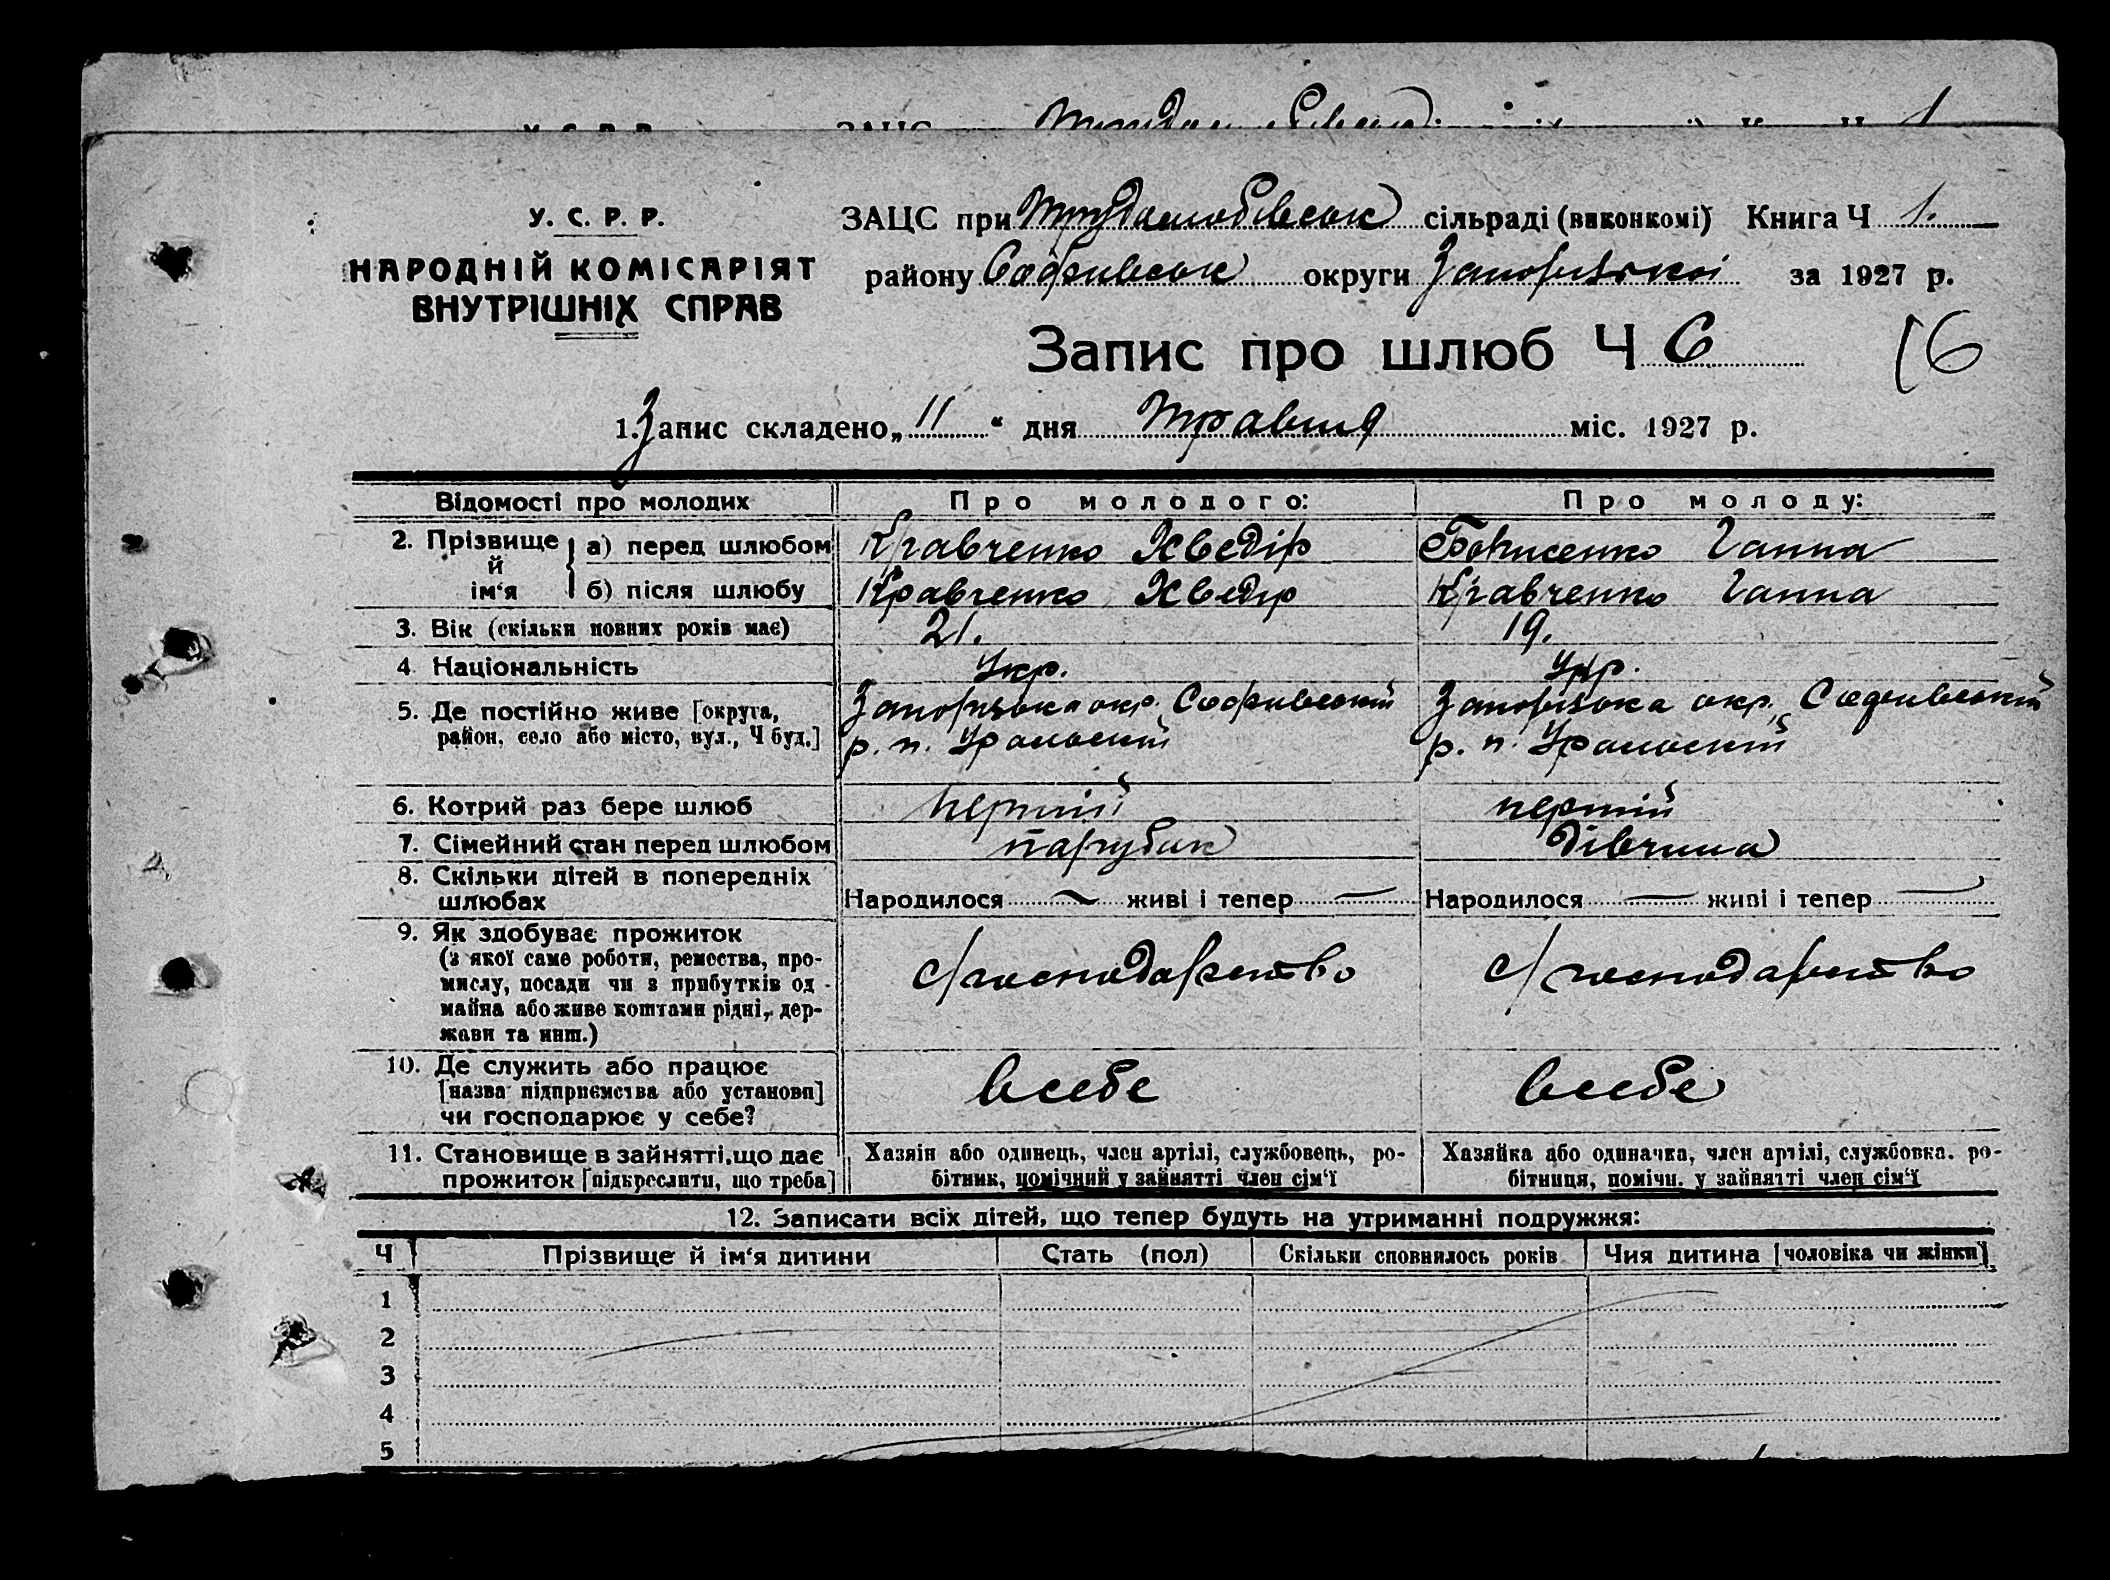 У. С. Р. Р.
НАРОДНІЙ КОМІСАРІЯТ
ВНУТРІШНІХ СПРАВ
ЗАЦС при Трудолюбівськ сільраді (виконкомі) Книга Ч 1.
району Софиівськ округи Запорізької за 1927 р.
Запис про шлюб Ч 6
16
1. Запис складено „11“ дня Травня міс. 1927 р.
Відомості про молодих
Про молодого:
Про молоду:
2. Прізвище й ім‘я
а) перед шлюбом
Кравченко Хведір
Борисенко Ганна
б) після шлюбу
Кравченко Хведір
Кравченко Ганна
3. Вік (скільки повних років має)
21.
19.
4 Національність
Укр.
Укр.
5. Де постійно живе [округа,
район, село або місто, вул., Ч буд.]
Запорізька окр. Софиівський
р. п. Уральский
Запорізька окр. Софиівський
р. п. Уральский
6. Котрий раз бере шлюб
перший
перший
7. Сімейний стан перед шлюбом
парубок
дівчина
8. Скільки дітей в попередніх
шлюбах
Народилося — живі і тепер —
Народилося — живі і тепер —
9. Як здобуває прожиток
(з якої саме роботи, ремества, про-
мислу, посади чи з прибутків од -
майна або живе коштами рідні, дер-
жави та инш.)
с/господарство
с/господарство
10. Де служить або працює
[назва підприємства або установи]
чи господарює у себе?
всебе
всебе
11. Становище в зайнятті, що дає
прожиток [підкреслити, що треба]
Хазяін або одинець, член артілі, службовець, ро-
бітник, помічний у зайнятті член сім‘ї
Хазяйка або одиначка, член артілі, службовка. ро-
бітниця, помічн. у зайнятті член сім‘ї
12. Записати всіх дітей, що тепер будуть на утриманні подружжя:
Ч
Прізвище й ім‘я дитини
Стать (пол)
Скільки сповнилось років
Чия дитина [чоловіка чи жінки]
1
2
3
4
5